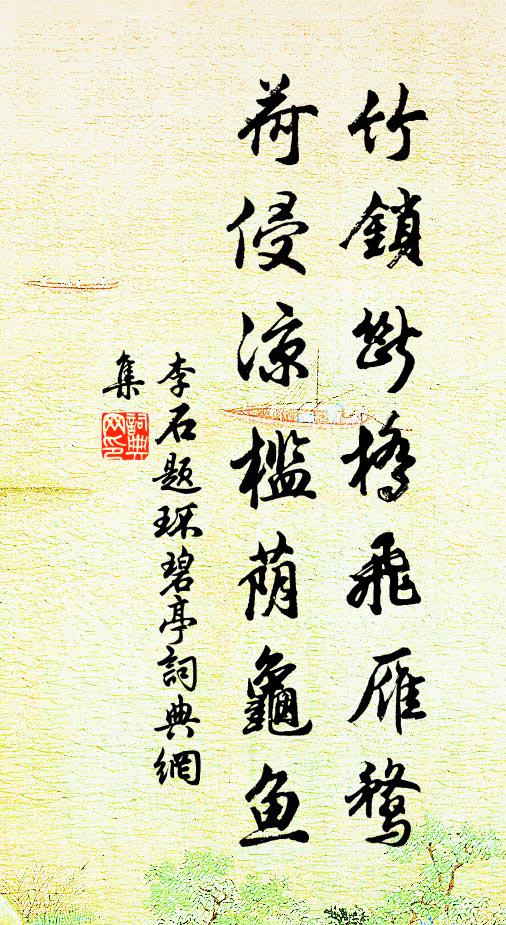 竹鎖斷橋飛雁鶩
荷侵涼檻蔭龜魚
李石題环碧亭詞典網
集
詞典网印